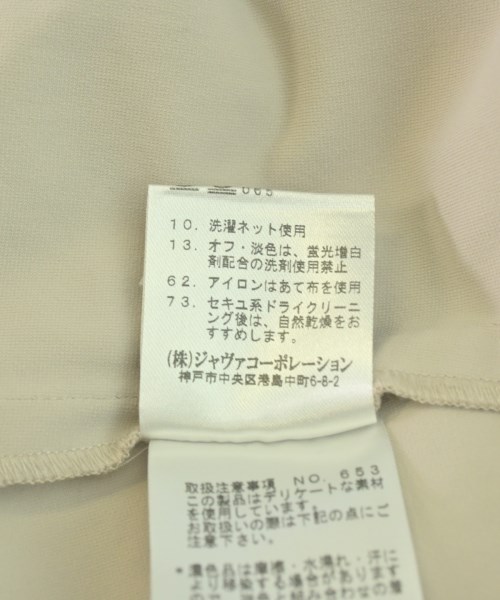 065
10. 洗濯ネット使用
13. オフ・淡色は、蛍光増白
剤配合の洗剤使用禁止
62. アイロンはあて布を使用
73. セキユ系ドライクリーニ
ング後は、自然乾燥をお
すすめします。
(株)ジャヴァコーポレーション
神戸市中央区港島中町6-8-2
取扱注意事項 NO. 653
この製品はデリケートな素材
を使用しています。
お取扱いの際は下記の点にご
注意下さい。
* 濃色品は摩擦・水濡れ・汗に
より移染する場合があります
ので、淡色と組み合わせの着